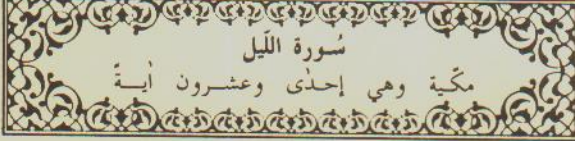 سُورة اللَّيل
مكّية وهي إحدٰى وعشــرون اٰيــةً